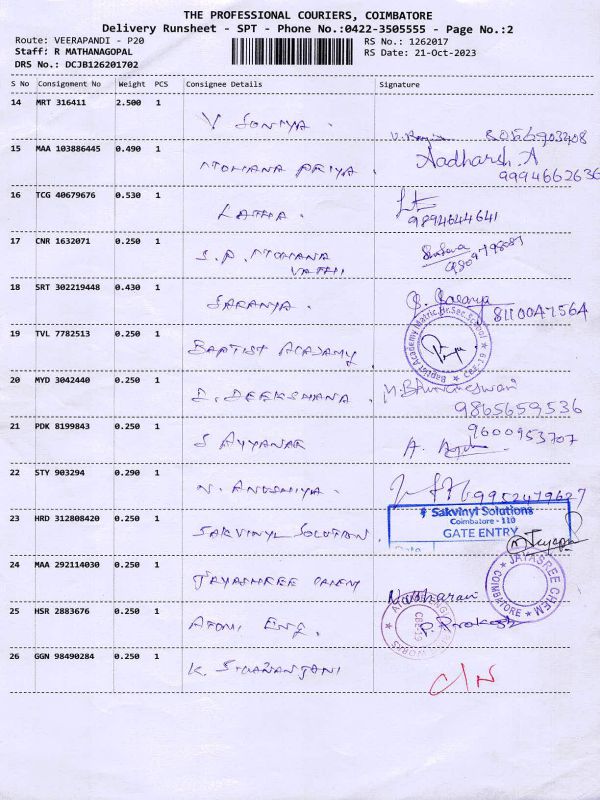 THE PROFESSIONAL COURIERS, COIMBATORE
Delivery Runsheet - SPT - Phone No.:0422-3505555 - Page No.:2
Route: VEERAPANDI - P20 RS No.: 1262017
Staff: R MATHANAGOPAL RS Date: 21-Oct-2023
DRS No.: DCJB126201702
S No Consignment No Weight PCS Consignee Details Signature
14 MRT 316411 2.500 1
V SONIYA. 8056903408
15 MAA 103886445 0.490 1
MOHANA PRIYA. Aadharsh.A
9994662636
16 TCG 40679676 0.530 1
LATHA. 9894644641
17 CNR 1632071 0.250 1
S.P. MOHANA
VATHI 9809798087
18 SRT 302219448 0.430 1
SARANYA. S. Saranya
8110047564
19 TVL 7782513 0.250 1
BAPTIST ACADAMY. Baptist Academy Matric.Hr.Sec.School
20 MYD 3042440 0.250 1
D. DEEKSHANA. M. Bhuvaneswari
9865659536
21 PDK 8199843 0.250 1
S AYYANAR 9600953707
22 STY 903294 0.290 1
N. ANUSHIYA. 9952479627
23 HRD 312808420 0.250 1
SAKVINYL SOLUTION. Sakvinyl Solutions
Coimbatore - 110
GATE ENTRY
Date
24 MAA 292114030 0.250 1
JAYASHREE CHEM JAYASREE CHEM
COIMBATORE
25 HSR 2883676 0.250 1
ATOMI ENG. P. Prakash
26 GGN 98490284 0.250 1
K. SIVARANJANI C/N